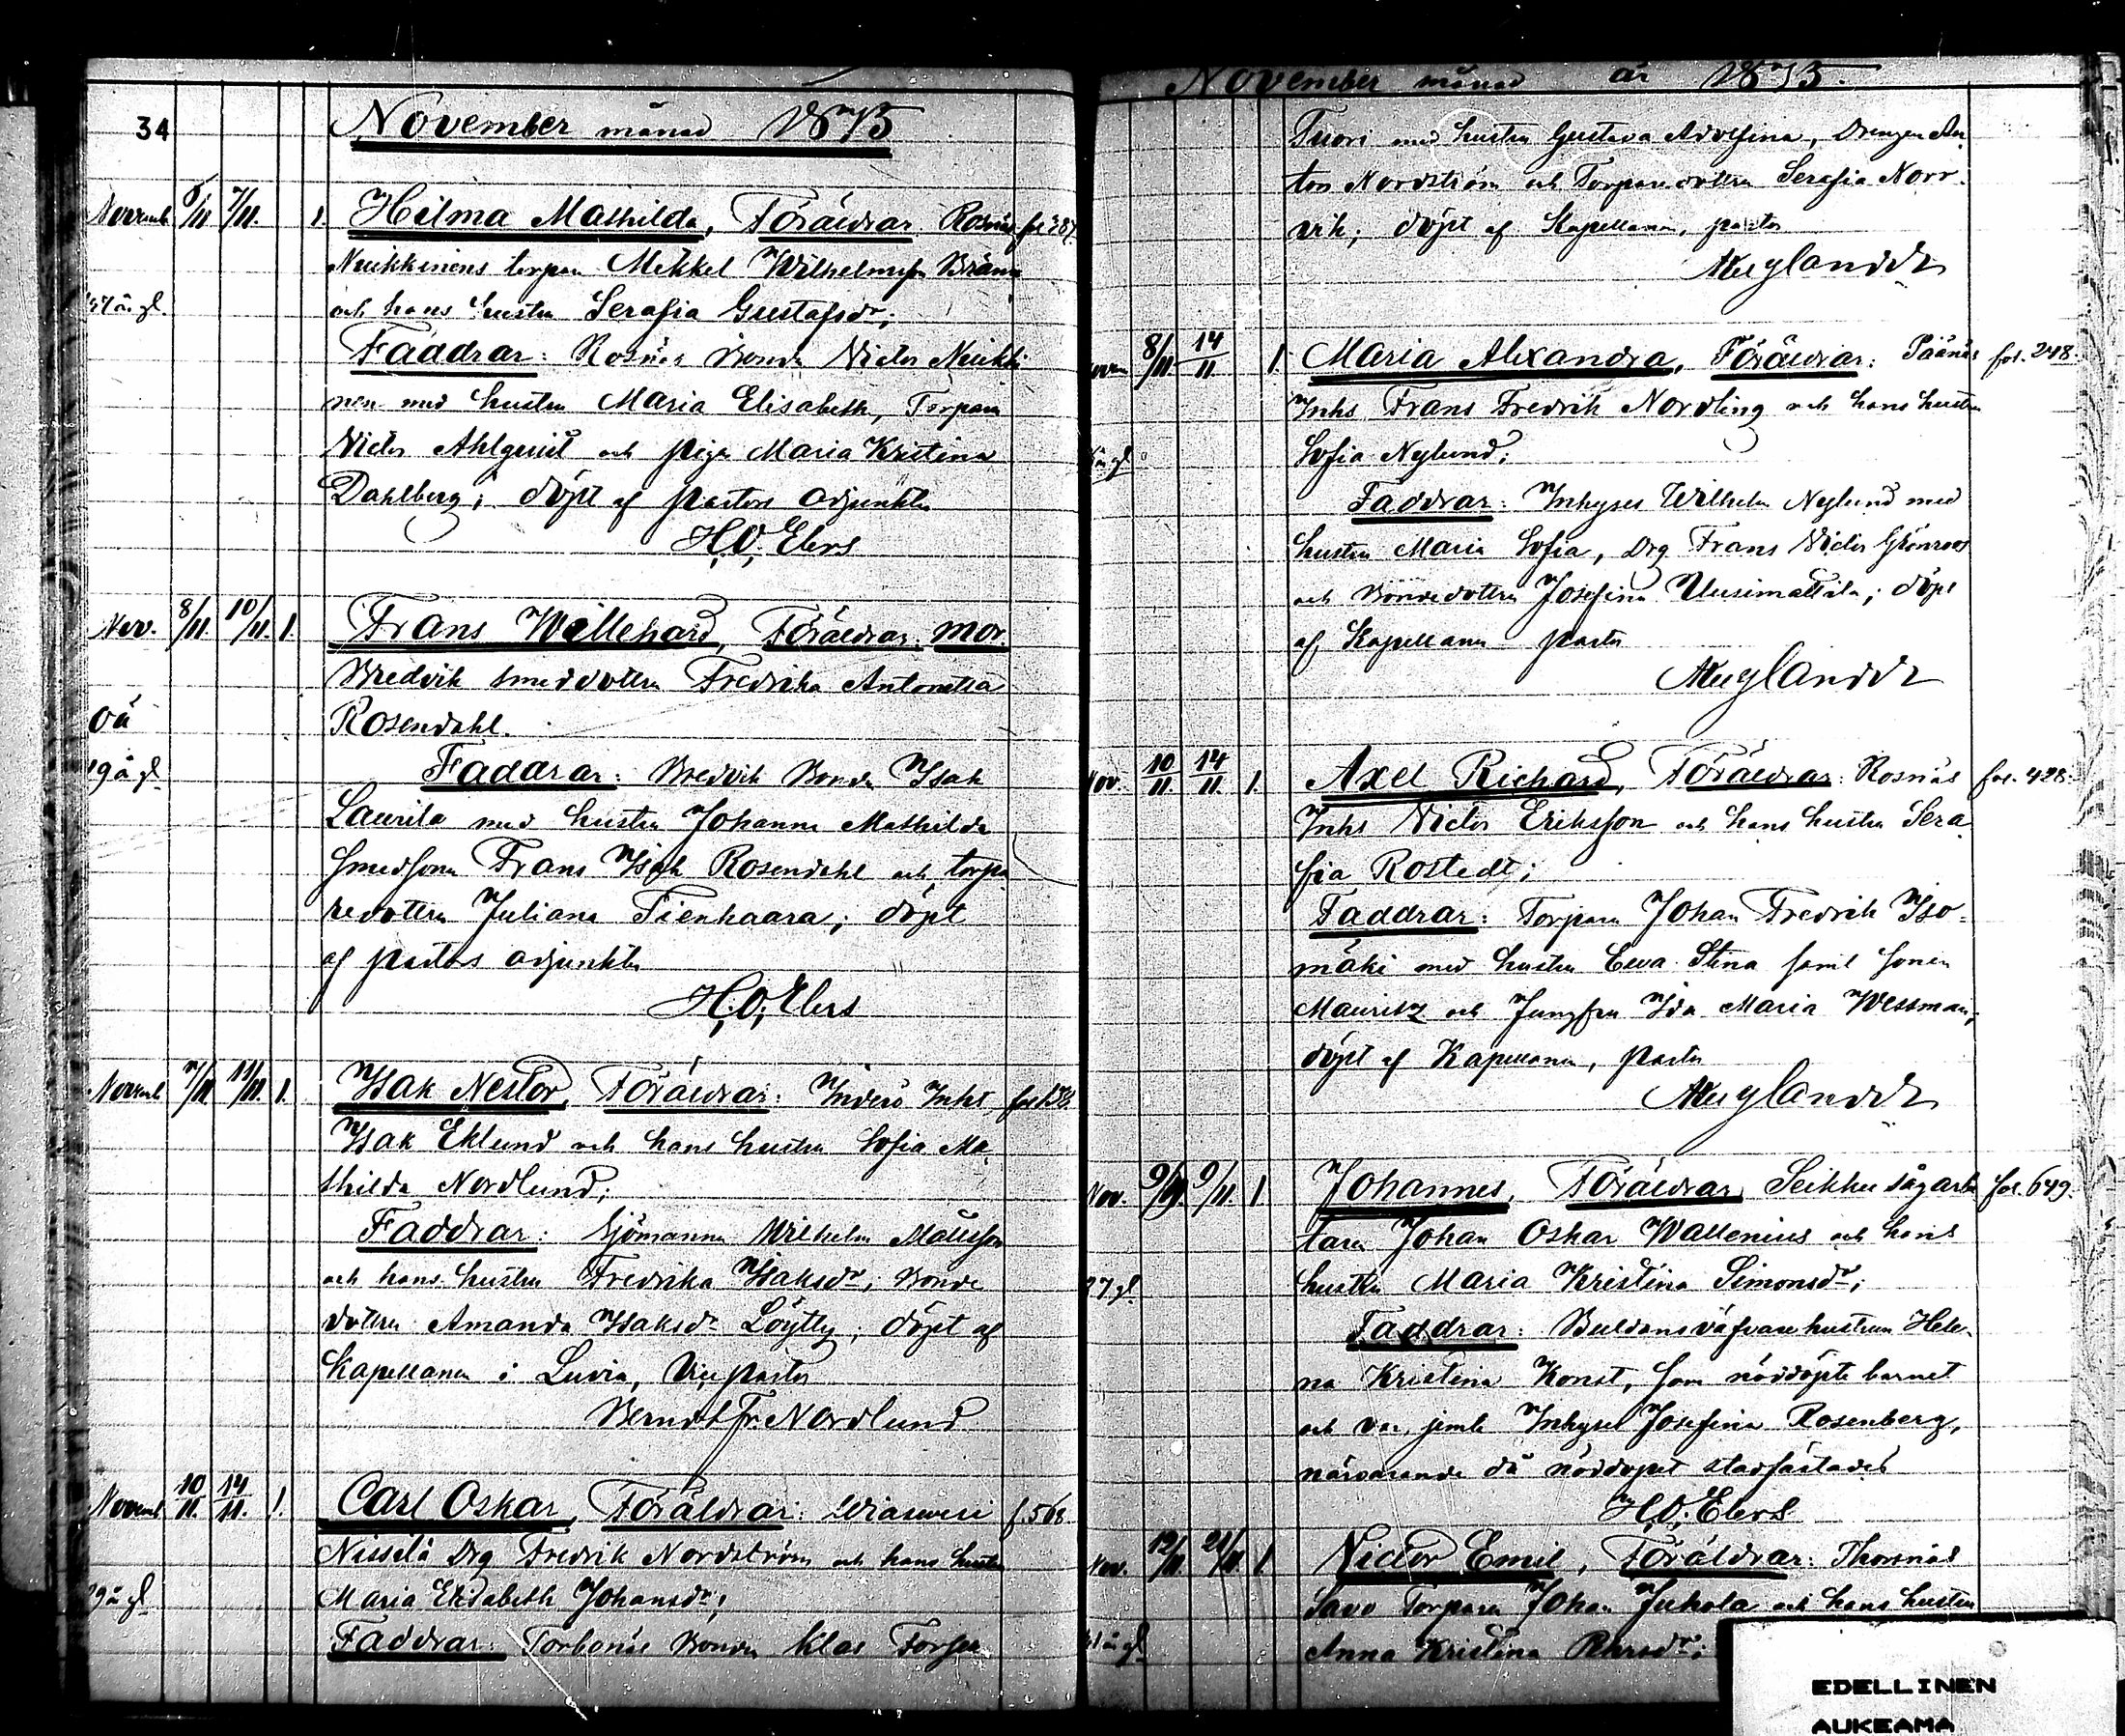 34
November månad 1875
Novemb 5/11 7/11. 1. Hilma Mathilda, Föräldrar Rosnäs fol 787.
Nuikkinens torpare Mikkel Wilhelmsson
och hans hustru Serafia Gustafsdr;
Faddrar: Rosnäs Bonden Victor Nuikki
nen med hustru Maria Elisabeth, Torparen
Victor Ahlqvist och pigan Maria Kristina
Dahlberg; döpt af pastors adjunkten
H. O. Elers
Nov. 8/11. 10/11. 1. Frans Willehard, Föräldrar: mor.
Bredvik smeddottern Fredrika Antonetta
oä Rosendahl.
Faddrar: Bredvik Bonden Isak
Laurila med hustru Johanna Mathilda
smedsonen Frans Isak Rosendahl och torpa
redottern Juliana Tienhaara; döpt
af pastors adjunkten
H. O. Elers
Novemb 7/11 11/11. 1. Isak Nestor, Föräldrar: Inderö Inhs
Isak Eklund och hans hustru Sofia Ma
thilda Nordlund;
Faddrar: Sjömannen Wilhelm Mattsson
och hans hustru Fredrika Isaksdr, Bonde
dottern Amanda Isaksdr Löytty; döpt af
Kapellanen i Luvia, Vice pastor
Berndt Fr. Nordlund
Novemb 10/11. 14/11. 1. Carl Oskar, Föräldrar: f. 568.
Nissilä Drg Fredrik Nordström och hans hustru
Maria Elisabeth Johansdr;
Faddrar: Torbonäs Bonden Klas Forsen
November månad år 1875.
Tuori med hustru Gustava Adolfina, Drengen An
ton Nordström och Torparedottern Serafia Norr
vik; döpt af Kapellanen, pastor
Nov 8/11 14/11 1. Maria Alexandra, Föräldrar: Päänäs fol. 248.
Inhs Frans Fredrik Nordling och hans hustru
Sofia Nylund;
Faddrar: Inhyses Wilhelm Nylund med
hustru Maria Sofia, Drg Frans Victor Grönroos
och Bondedottern Josefina Uusimattila; döpt
af Kapellanen pastor
Nov. 10/11. 14/11. 1. Axel Richard, Föräldrar: Rosnäs fol. 428.
Inhs Victor Eriksson och hans hustru Sera
fia Rostedt;
Faddrar: Torparen Johan Fredrik Iso-
mäki med hustru Eeva Stina samt sonen
Mauritz och Jungfru Ida Maria Wessman;
döpt af Kapellanen, pastor
Nov. 9/11. 9/11. 1 Johannes, Föräldrar, Seikku sågarbe fol. 649.
taren Johan Oskar Wallenius och hans
hustru Maria Kristina Simonsdr;
Faddrar: Buldansväfvarehustrun Hele-
na Kristina Konst, som nöddöpte barnet
och var, jemte Inhyses Josefina Rosenberg,
närvarande då nöddopet stadfästades
H. O. Elers
Nov. 12/11. 21/11. 1 Victor Emil, Föräldrar: Thorsnäs
Savo Torparen Johan Juhola och hans hustru
Anna Kristina
EDELLINEN
AUKEAMA